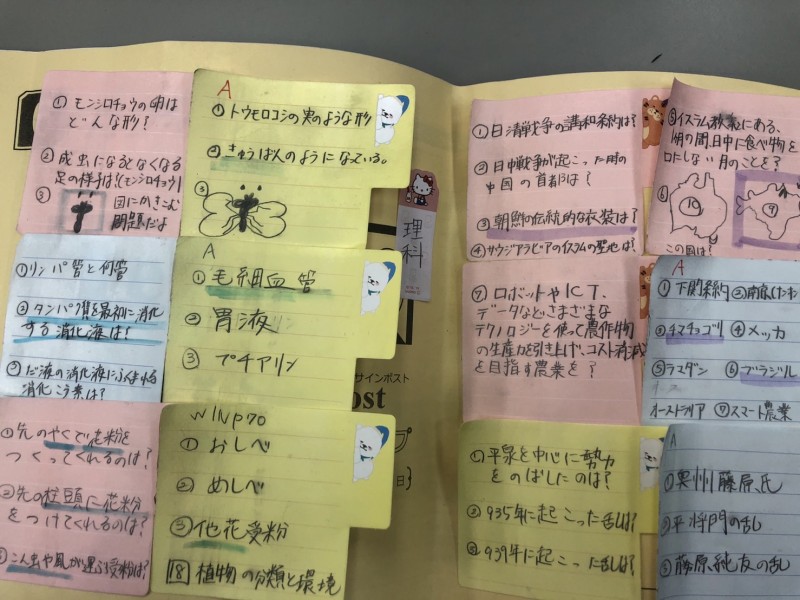 ① モンシロチョウの卵は
どんな形?
② 成虫になるとなくなる
足の様子は?(モンシロチョウ)
③ 図にかきこむ
問題だよ
A
① トウモロコシの実のような形
② きゅうばんのようになっている。
③
理科
① リンパ管と何管
② タンパク質を最初に消化
する消化液は?
③ だ液の消化液にふくまれる
消化こう素は?
A
① 毛細血管
② 胃液
③ プチアリン
サインポスト
ost
プ
日)
① 先のやくで花粉を
つくってくれるのは?
② 先の柱頭に花粉
をつけてくれるのは?
③ こん虫や風が運ぶ受粉は?
WINP70
① おしべ
② めしべ
③ 他花受粉
18 植物の分類と環境
① 日清戦争の講和条約は?
② 日中戦争が起こった時の
中国の首都は?
③ 朝鮮の伝統的な衣装は?
④ サウジアラビアのイスラムの聖地は?
⑤ イスラム教徒にある、
1月の間、日中に食べ物を
口にしない月のことを?
⑥
この国は?
⑦ ロボットやICT、
データなどさまざまな
テクノロジーを使って農作物
の生産力を引き上げ、コスト削減
を目指す農業を?
A
① 下関条約 ②
③ チマチョゴリ ④ メッカ
⑤ ラマダン ⑥ ブラジル
オーストラリア ⑦ スマート農業
① 平泉を中心に勢力
をのばしたのは?
② 935年に起こった乱は?
③ 939年に起こった乱は?
A
① 奥州藤原氏
② 平将門の乱
③ 藤原純友の乱